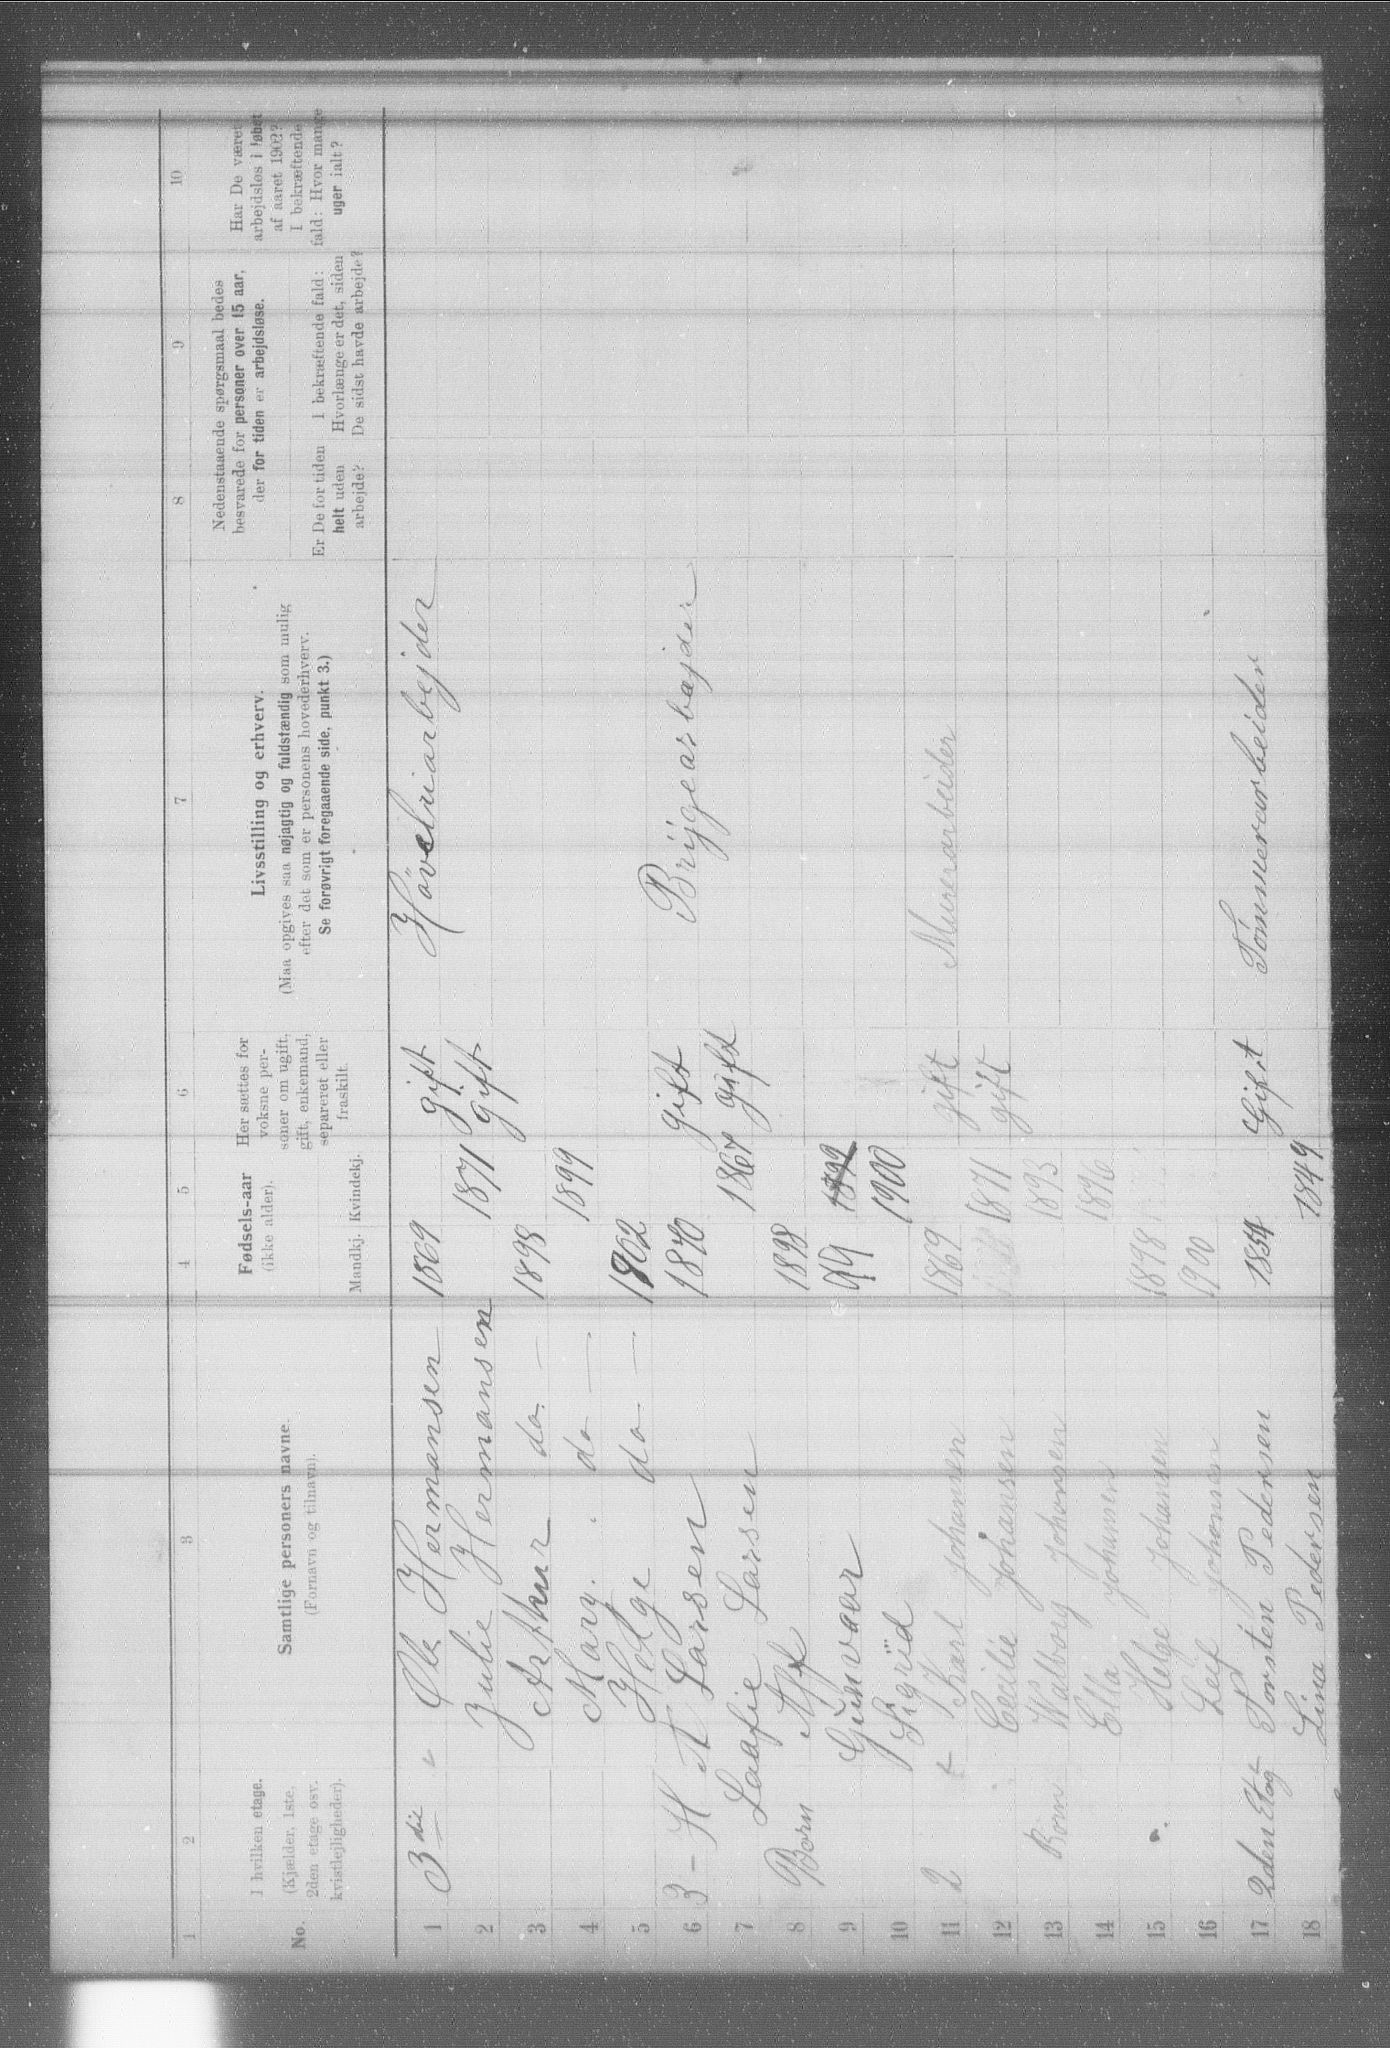 1 2 3 4 5 6 7 8 9 10
No.
I hvilken etage.
(Kjælder, 1ste,
2den etage osv.
kvistlejligheder).
Samtlige personers navne.
(Fornavn og tilnavn).
Fødsels-aar
(ikke alder).
Mandkj. Kvindekj.
Her sættes for
voksne per-
soner om ugift,
gift, enkemand,
separeret eller
fraskilt.
Livsstilling og erhverv.
(Maa opgives saa nøjagtig og fuldstændig som mulig
efter det som er personens hovederhverv.
Se forøvrigt foregaaende side, punkt 3.)
Nedenstaaende spørgsmaal bedes
besvarede for personer over 15 aar,
der for tiden er arbejdsløse.
Er De for tiden
helt uden
arbejde?
I bekræftende fald:
Hvorlænge er det, siden
De sidst havde arbejde?
Har De været
arbejdsløs i løbet
af aaret 1902?
I bekræftende
fald: Hvor mange
uger ialt?
1 3die Ole Hermansen 1869 gift Hövelriarbejder
2 Julie Hermansen 1871 gift
3 Arthur do. — 1898
4 Mary. do — 1899
5 Helge do — 1902
6 3 - H. A Larsen 1870 gift Brÿgearbæjder
7 Laafie Larsen 1867 gift
8 Born Alf 1898
9 Gunvaar 99 1899
10 Sigrid 1900
11 2 t Karl Johansen 1869 gift Murerarbeider
12 Cecilie Johansen 1871 gift
13 Born Walborg Johansen 1893
14 Ella Johansen 1896
15 Helge Johansen 1898
16 Leif Johansen 1900
17 2den Etag Torsten Pedersen 1854 Gift Tømmerarbeider
18 Lina Pedersen 1849